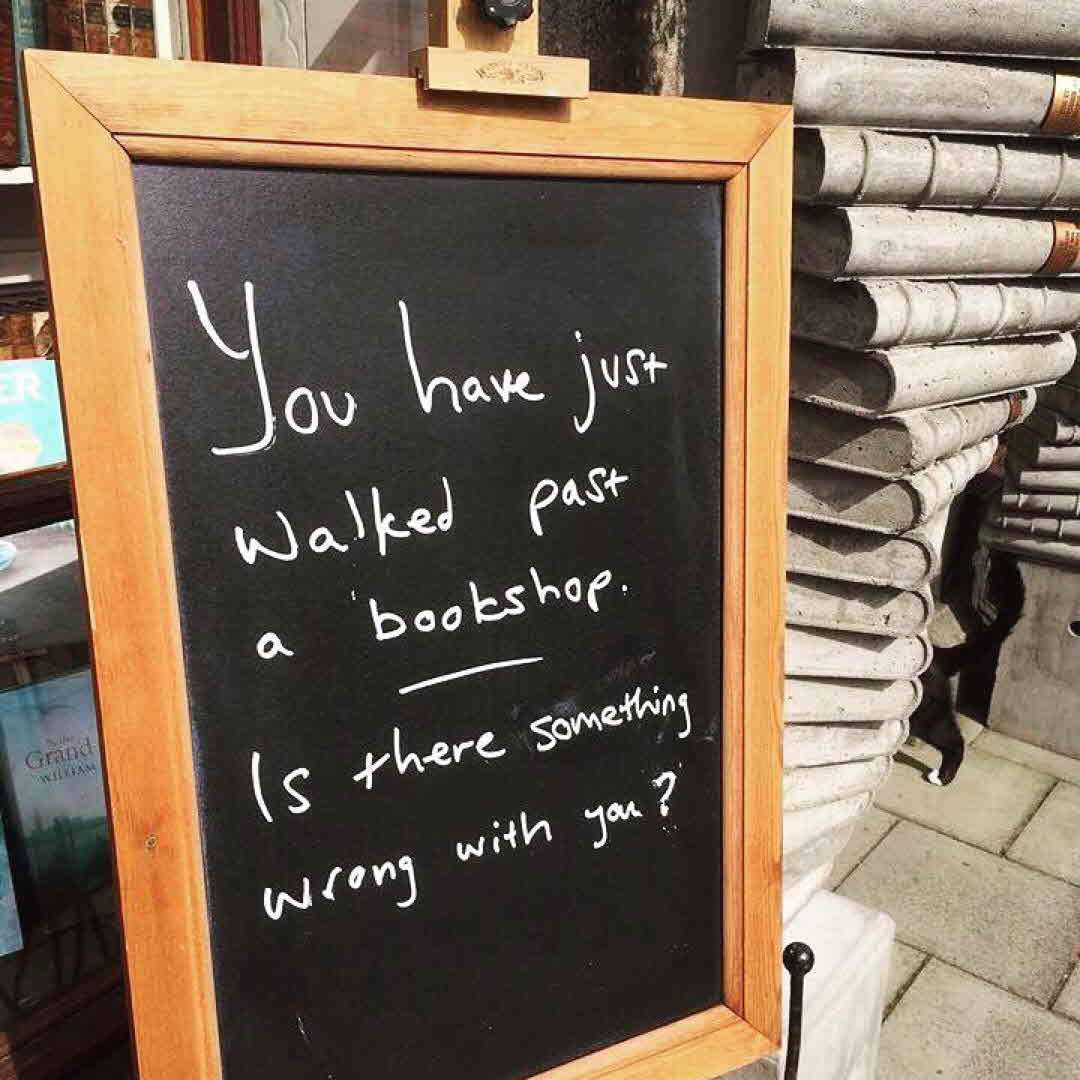 You have just
walked past
a bookshop.
Is there something
wrong with you?
ER
Grand
WILLIAM